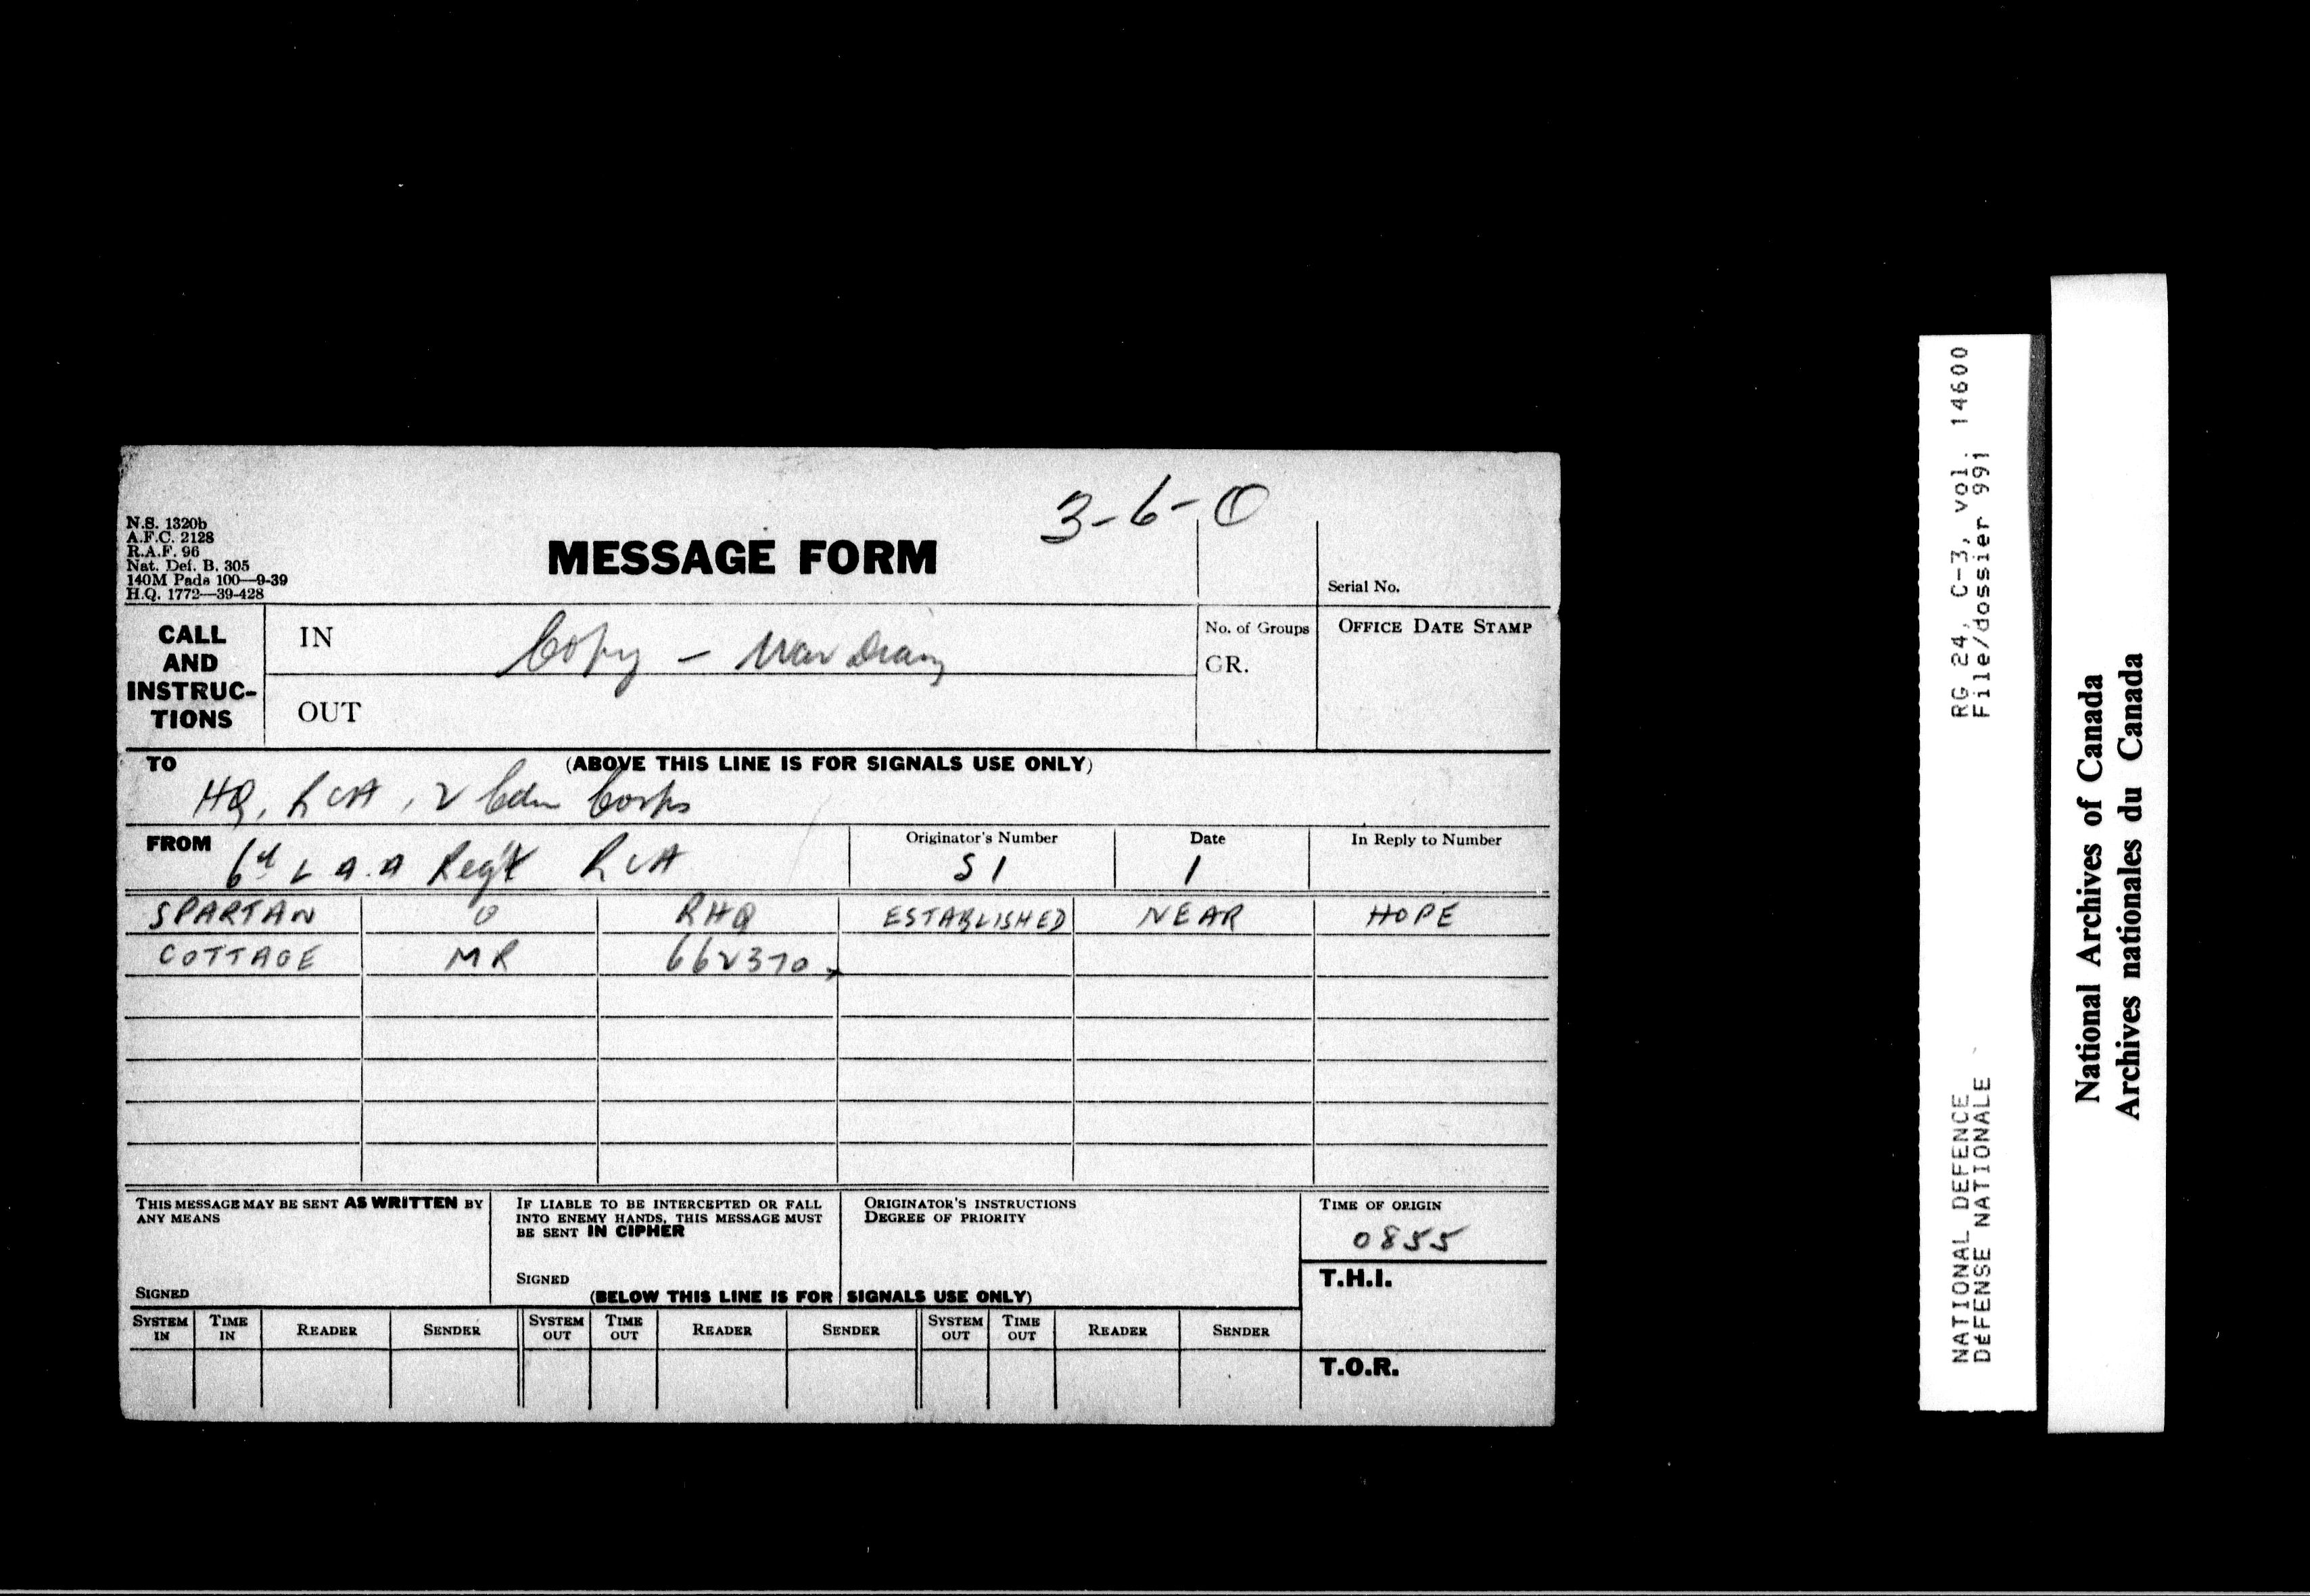 3-6-0
N.S. 1320b
A.F.C. 2128
R.A.F. 96
Nat. Def. B. 305
140M Pads 100—9-39
H.Q. 1772—39-428
MESSAGE FORM
Serial No.
CALL AND INSTRUC-TIONS
IN Copy - War Diary
OUT
No. of Groups
GR.
OFFICE DATE STAMP
TO (ABOVE THIS LINE IS FOR SIGNALS USE ONLY)
HQ, RCA, 2 Cdn Corps
FROM 6 L A.A Reg't RCA
Originator's Number S1
Date 1
In Reply to Number
SPARTAN O RHQ ESTABLISHED NEAR HOPE
COTTAGE MR 662370
THIS MESSAGE MAY BE SENT AS WRITTEN BY ANY MEANS
SIGNED
IF LIABLE TO BE INTERCEPTED OR FALL INTO ENEMY HANDS, THIS MESSAGE MUST BE SENT IN CIPHER
SIGNED
ORIGINATOR'S INSTRUCTIONS
DEGREE OF PRIORITY
TIME OF ORIGIN
0855
T.H.I.
(BELOW THIS LINE IS FOR SIGNALS USE ONLY)
SYSTEM IN TIME IN READER SENDER SYSTEM OUT TIME OUT READER SENDER SYSTEM OUT TIME OUT READER SENDER
T.O.R.
NATIONAL DEFENCE RG 24, C-3, vol. 14600
DÉFENSE NATIONALE File/dossier 991
National Archives of Canada
Archives nationales du Canada